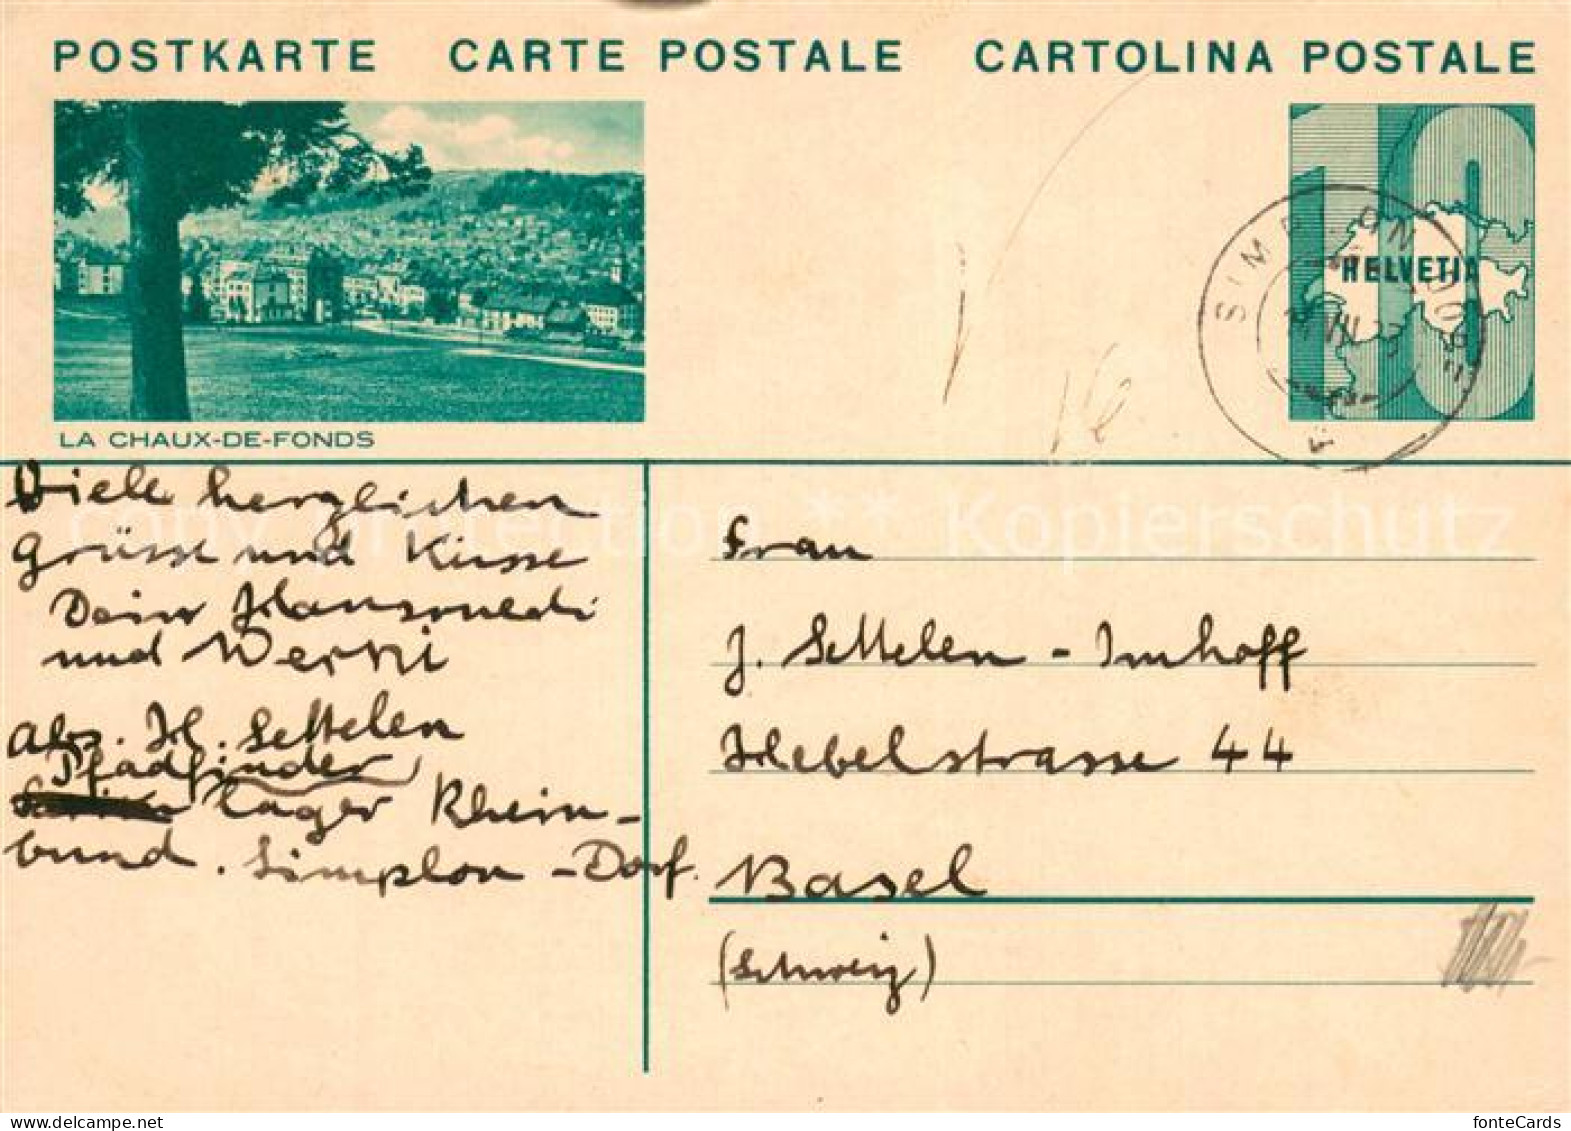 POSTKARTE CARTE POSTALE CARTOLINA POSTALE
HELVETIA
SIMPLON
LA CHAUX-DE-FONDS
Viele herzlichen
Grüsse und Küsse
Dein Hansruedi
und Werni
Abs. H. Settelen
Pfadfinder
lager Rhein-
bund. Simplon-Dorf.
Frau
J. Settelen-Imhoff
Hebelstrasse 44
Basel
(Schweiz)
copy protection ** Kopierschutz
fonteCards